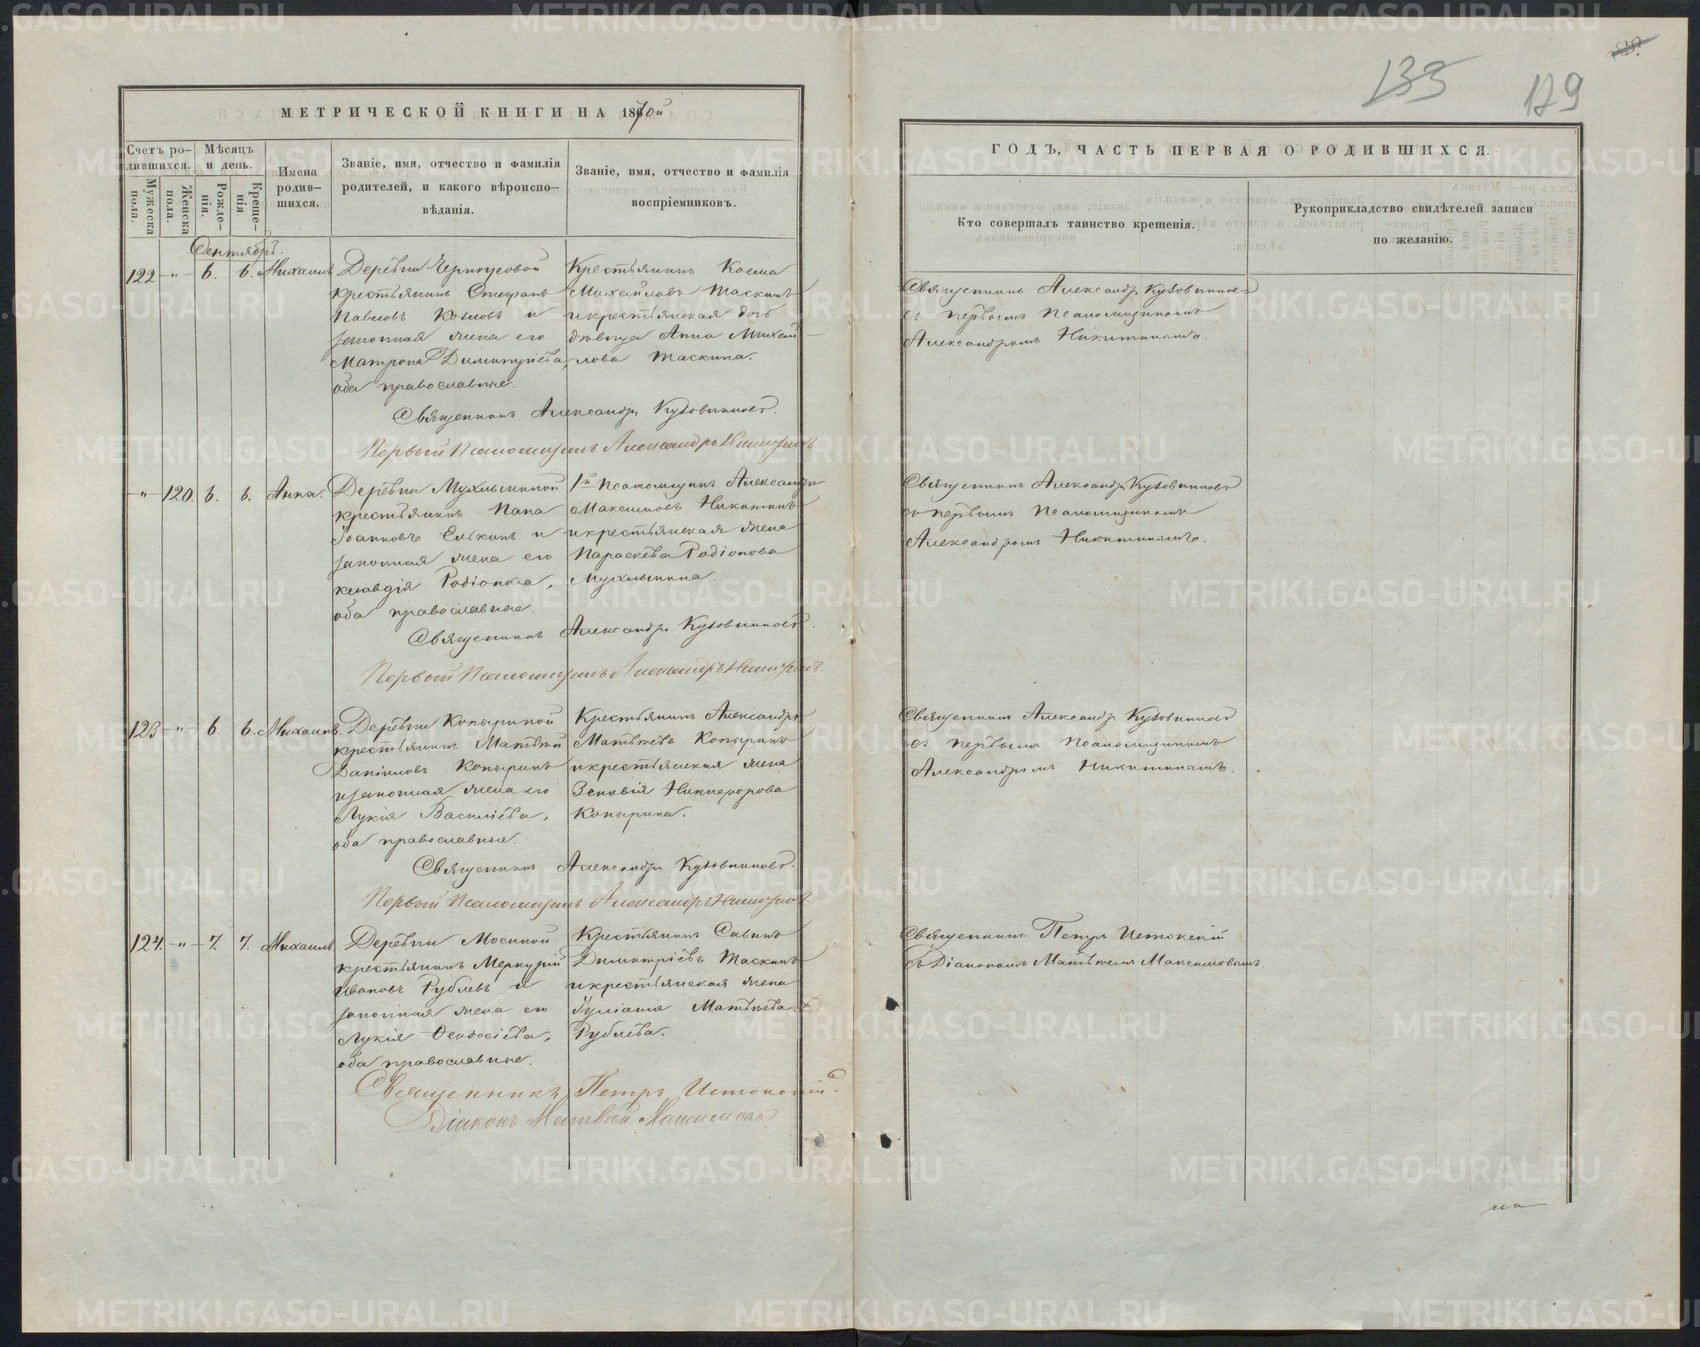 МЕТРИЧЕСКОЙ КНИГИ НА 1870й
Счетъ родившихся.
Мужеска пола.
Женска пола.
Мѣсяцъ и день.
Рожденія.
Крещенія.
Имена родившихся.
Званіе, имя, отчество и фамилія
родителей, и какого вѣроиспо-
вѣданія.
Званіе, имя, отчество и фамилія
воспріемниковъ.
Сентябрь.
122 - " - 6. 6. Михаилъ
Деревни Черноусовой
крестьянинъ Стефанъ
Павловъ Козловъ и
законная жена его
Матрона Димитріева,
оба православные.
Крестьянинъ Косма
Михайловъ Таскинъ
и крестьянская дочь
дѣвица Анна Михай
лова Таскина.
Священникъ Александръ Кузовниковъ.
Первый Псаломщикъ Александръ Никитинъ
- " - 120. 6. 6. Анна.
Деревни Мухлыниной
крестьянинъ Папа
Іоанновъ Елькинъ и
законная жена его
Клавдія Родіонова,
оба православные.
1й Псаломщикъ Александръ
Максимовъ Никитинъ
и крестьянская жена
Параскева Родіонова
Мухлынина.
Священникъ Александръ Кузовниковъ.
Первый Псаломщикъ Александръ Никитинъ.
123 - " - 6. 6. Михаилъ.
Деревни Копыриной
крестьянинъ Матвѣй
Даніиловъ Копыринъ
и законная жена его
Лукія Васильева,
оба православные.
Крестьянинъ Александръ
Матвѣевъ Копыринъ
и крестьянская жена
Зеновія Никифорова
Копырина.
Священникъ Александръ Кузовниковъ.
Первый Псаломщикъ Александръ Никитинъ
124. - " - 7. 7. Михаилъ.
Деревни Мосиной
крестьянинъ Меркурій
Ивановъ Рублевъ и
законная жена его
Лукія Ѳеодосіева,
оба православные.
Крестьянинъ Савинъ
Димитріевъ Таскинъ
и крестьянская жена
Іуліанія Матвѣева
Рублева.
Священникъ Петръ Истокскій.
Діаконъ Матвѣй Максимовъ
133 129
ГОДЪ, ЧАСТЬ ПЕРВАЯ О РОДИВШИХСЯ.
Кто совершалъ таинство крещенія.
Рукоприкладство свидѣтелей записи
по желанію.
Священникъ Александръ Кузовниковъ
съ первымъ Псаломщикомъ
Александромъ Никитинымъ.
Священникъ Александръ Кузовниковъ
съ первымъ Псаломщикомъ
Александромъ Никитинымъ.
Священникъ Александръ Кузовниковъ
съ первымъ Псаломщикомъ
Александромъ Никитинымъ.
Священникъ Петръ Истокскій
съ Діакономъ Матвѣемъ Максимовымъ.
METRIKI.GASO-URAL.RU